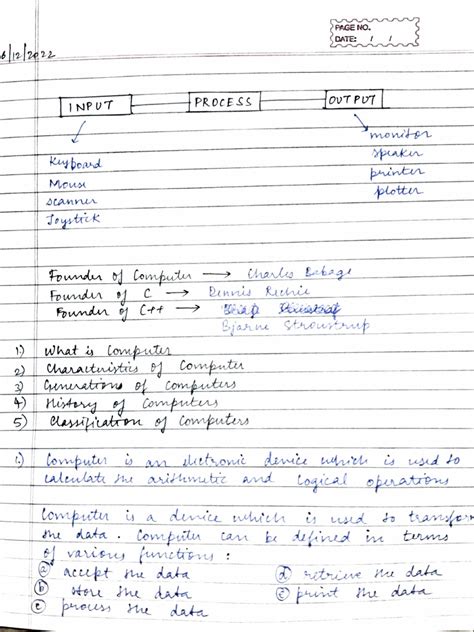 PAGE NO.
DATE: / /
6/12/2022
INPUT PROCESS OUTPUT
Keyboard
Mouse
scanner
Joystick
monitor
speaker
printer
plotter
Founder of Computer → Charles Babage
Founder of C → Dennis Richie
Founder of C++ →
Bjarne Stroustrup
1) What is Computer
2) Characteristics of Computer
3) Generations of Computers
4) History of Computers
5) Classification of Computers
1.) Computer is an electronic device which is used to
calculate the arithmetic and logical operations
Computer is a device which is used to transform
the data. Computer can be defined in terms
of various functions :
a accept the data d retrieve the data
b store the data e print the data
c process the data